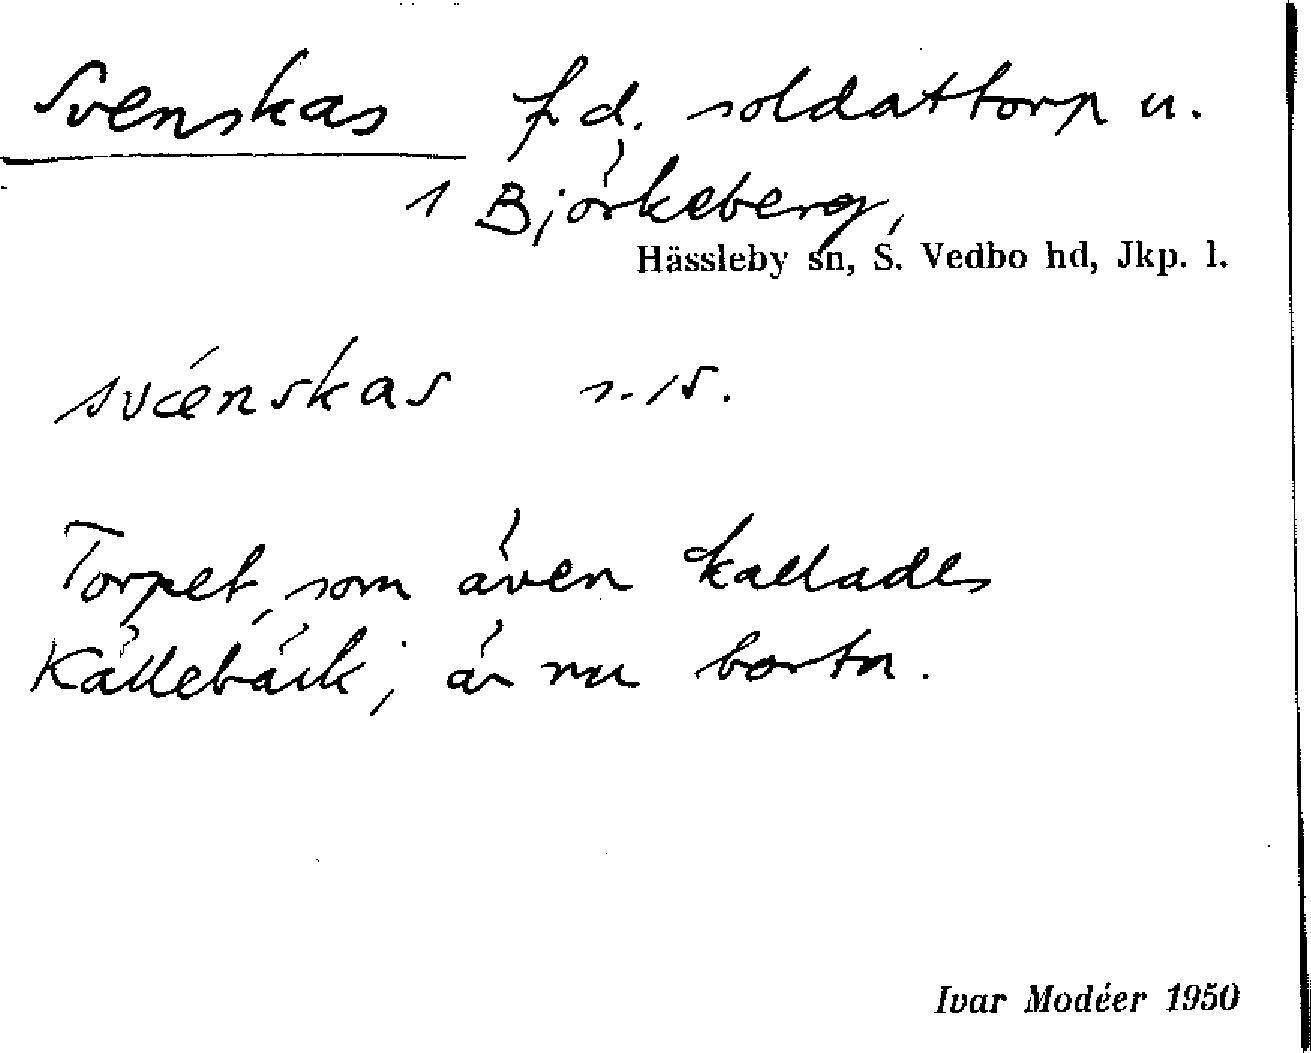 Svenskas f.d. soldattorp u.
1 Björkeberg,
Hässleby sn, S. Vedbo hd, Jkp. l.
svénskas
Torpet, som även kallades
Källebäck, är nu borta.
Ivar Modéer 1950